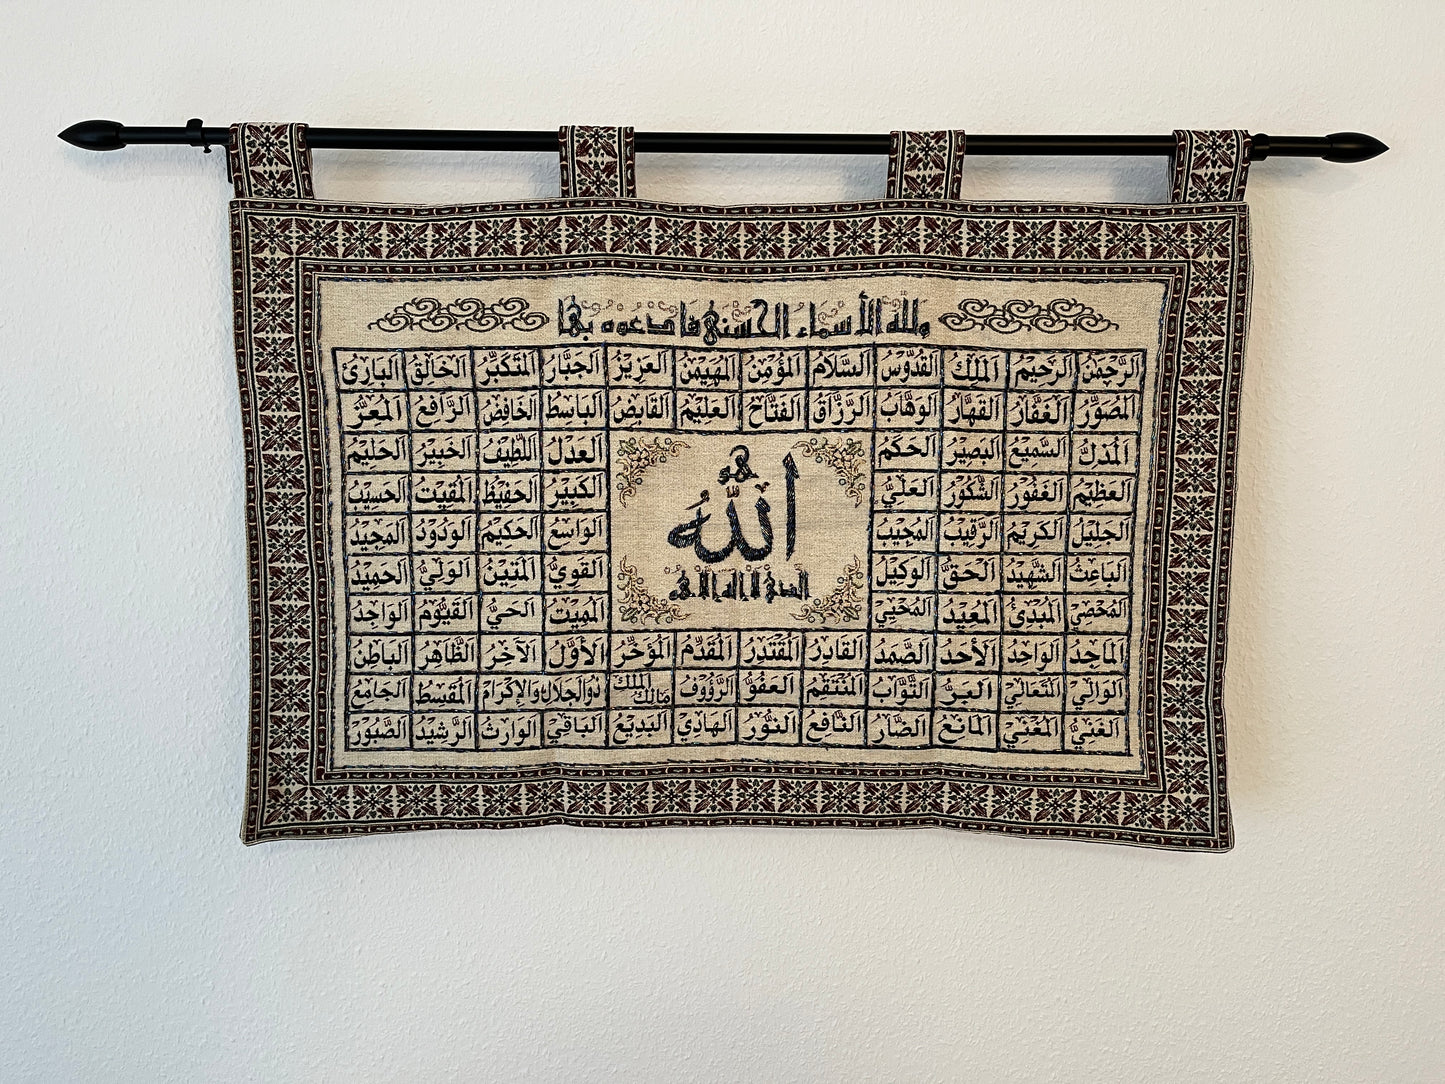 وَلِلَّهِ الأَسْمَاءُ الحُسْنَى فَادْعُوهُ بِهَا
الرَّحْمٰنُ الرَّحِيْمُ المَلِكُ القُدُّوْسُ السَّلَامُ المُؤْمِنُ المُهَيْمِنُ العَزِيْزُ الجَبَّارُ المُتَكَبِّرُ الخَالِقُ البَارِئُ
المُصَوِّرُ الغَفَّارُ القَهَّارُ الوَهَّابُ الرَّزَّاقُ الفَتَّاحُ العَلِيْمُ القَابِضُ البَاسِطُ الخَافِضُ الرَّافِعُ المُعِزُّ
المُذِلُّ السَّمِيْعُ البَصِيْرُ الحَكَمُ العَدْلُ اللَّطِيْفُ الخَبِيْرُ الحَلِيْمُ
العَظِيْمُ الغَفُوْرُ الشَّكُوْرُ العَلِيُّ الكَبِيْرُ الحَفِيْظُ المُقِيْتُ الحَسِيْبُ
الجَلِيْلُ الكَرِيْمُ الرَّقِيْبُ المُجِيْبُ الوَاسِعُ الحَكِيْمُ الوَدُوْدُ المَجِيْدُ
البَاعِثُ الشَّهِيْدُ الحَقُّ الوَكِيْلُ القَوِيُّ المَتِيْنُ الوَلِيُّ الحَمِيْدُ
المُحْصِيْ المُبْدِئُ المُعِيْدُ المُحْيِيْ المُمِيْتُ الحَيُّ القَيُّوْمُ الوَاجِدُ
هُوَ
اللَّهُ
الَّذِي لَا إِلَهَ إِلَّا هُوَ
المَاجِدُ الوَاحِدُ الأَحَدُ الصَّمَدُ القَادِرُ المُقْتَدِرُ المُقَدِّمُ المُؤَخِّرُ الأَوَّلُ الآخِرُ الظَّاهِرُ البَاطِنُ
الوَالِيْ المُتَعَالِيْ البَرُّ التَّوَّابُ المُنْتَقِمُ العَفُوُّ الرَّؤُوْفُ مَالِكُ المُلْكِ ذُوالجَلَالِ وَالإِكْرَامِ المُقْسِطُ الجَامِعُ
الغَنِيُّ المُغْنِيْ المَانِعُ الضَّارُّ النَّافِعُ النُّوْرُ الهَادِيْ البَدِيْعُ البَاقِيْ الوَارِثُ الرَّشِيْدُ الصَّبُوْرُ